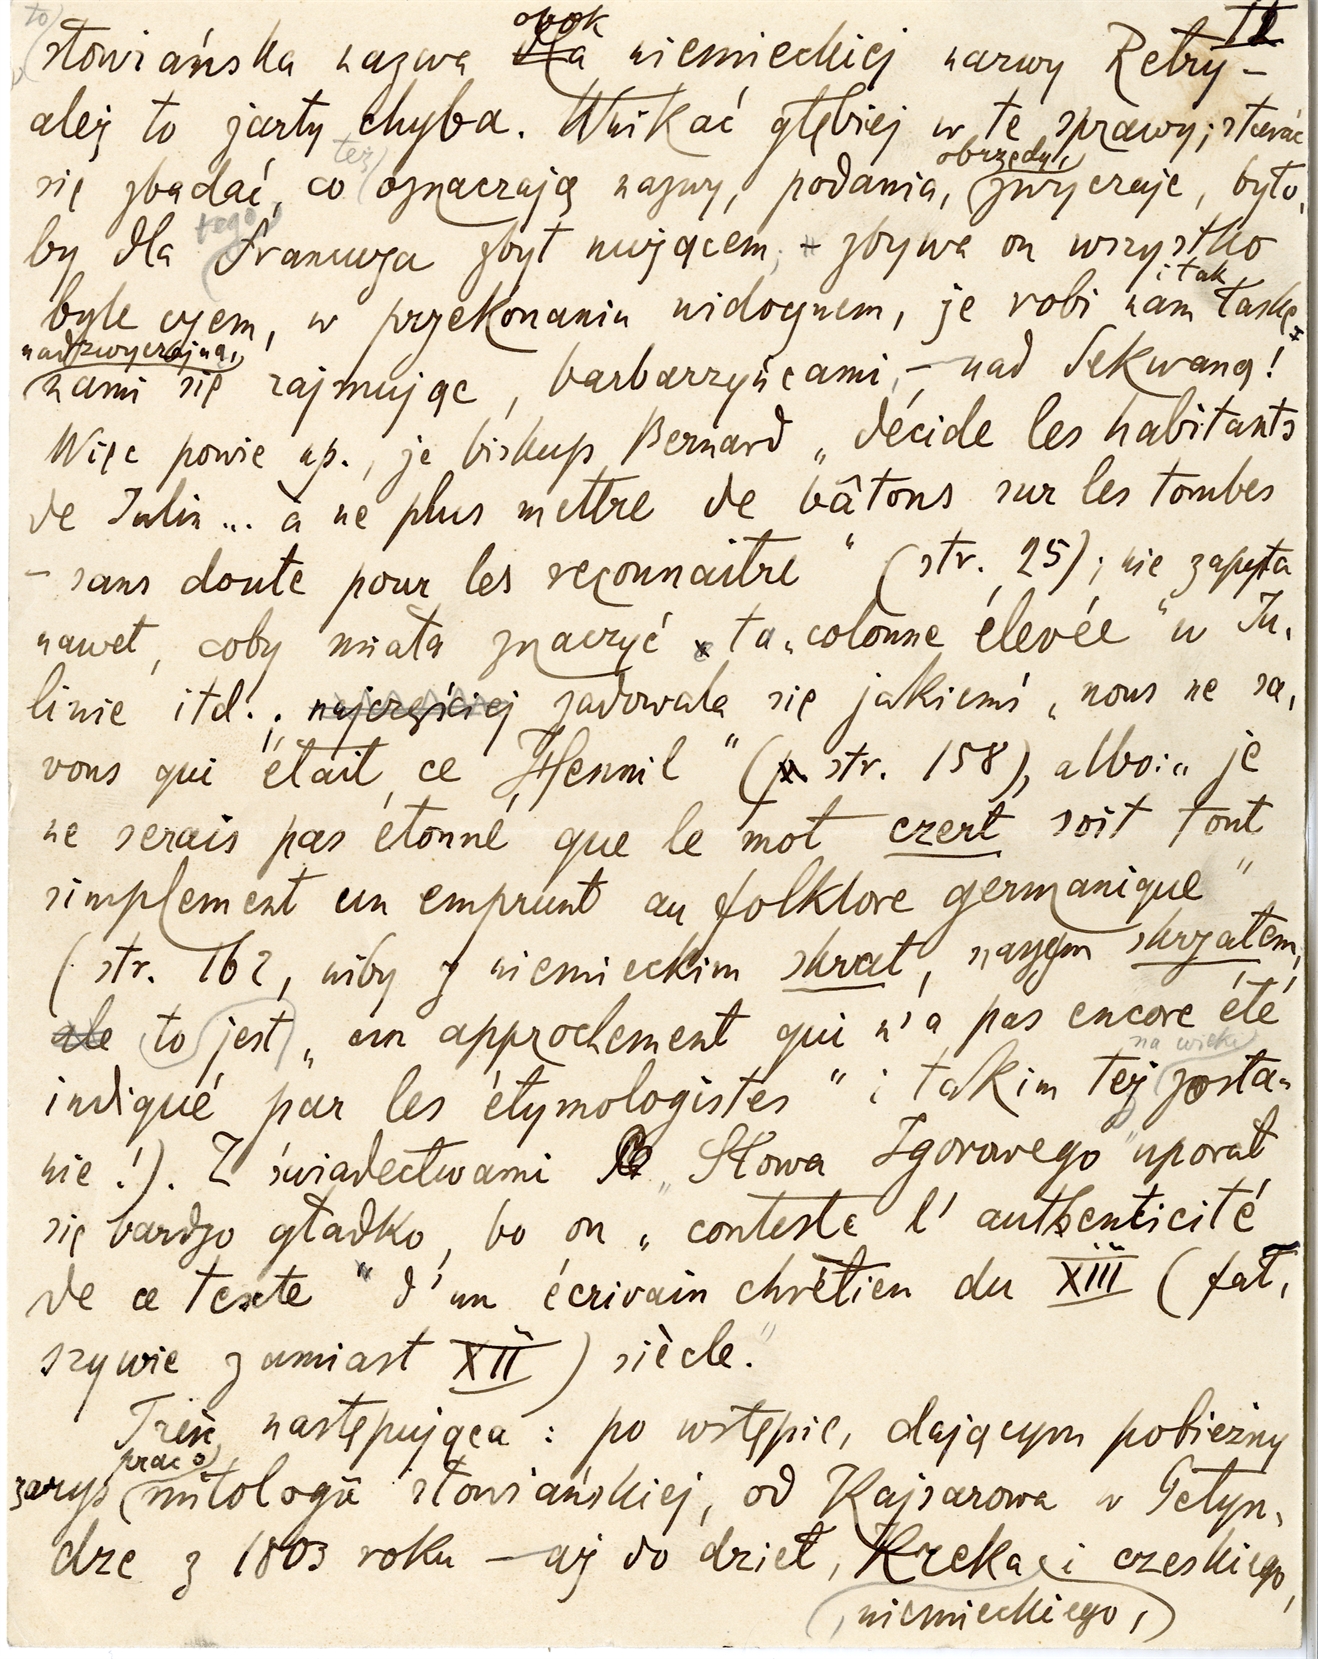 II
to słowiańska nazwa dla obok niemieckiej nazwy Retry –
ależ to żarty chyba. Wnikać głębiej w te sprawy; starać
się zbadać, co też oznaczają nazwy, podania, obrzędy, zwyczaje, było,
by dla tego Francuza zbyt nużącem, – zbywa on wszystko
byle czem, w przekonaniu widocznem, że robi nam i tak łaskę
nadzwyczajną, nami się zajmując, barbarzyńcami, – nad Sekwaną!
Więc powie np., że biskup Bernard „décide les habitants
de Julin ... à ne plus mettre de bâtons sur les tombes
– sans doute pour les reconnaitre" (str. 25); nie zapyta
nawet, coby miała znaczyć ta „colonne élevée" w Ju,
linie itd.; najczęściej zadowala się jakiemś „nous ne sa,
vons qui était ce Hennil" (str. 158), albo: „je
ne serais pas étonné que le mot czert soit tout
simplement un emprunt au folklore germanique"
(str. 162, niby z niemieckim skrat, naszym skrzatem,
ale to jest „un approchement qui n'a pas encore été
indiqué par les étymologistes" i takim też na wieki zosta-
nie!). Z świadectwami „Słowa Igorowego" uporał
się bardzo gładko, bo on „conteste l'authenticité
de ce texte" d'un écrivain chrétien du XIII (fał,
szywie zamiast XII) siècle."
Treść następująca: po wstępie, dającym pobieżny
zarys prac o mitologii słowiańskiej, od Kajsarowa w Getyn,
dze z 1803 roku – aż do dzieł, Kreka i czeskiego,
, niemieckiego,